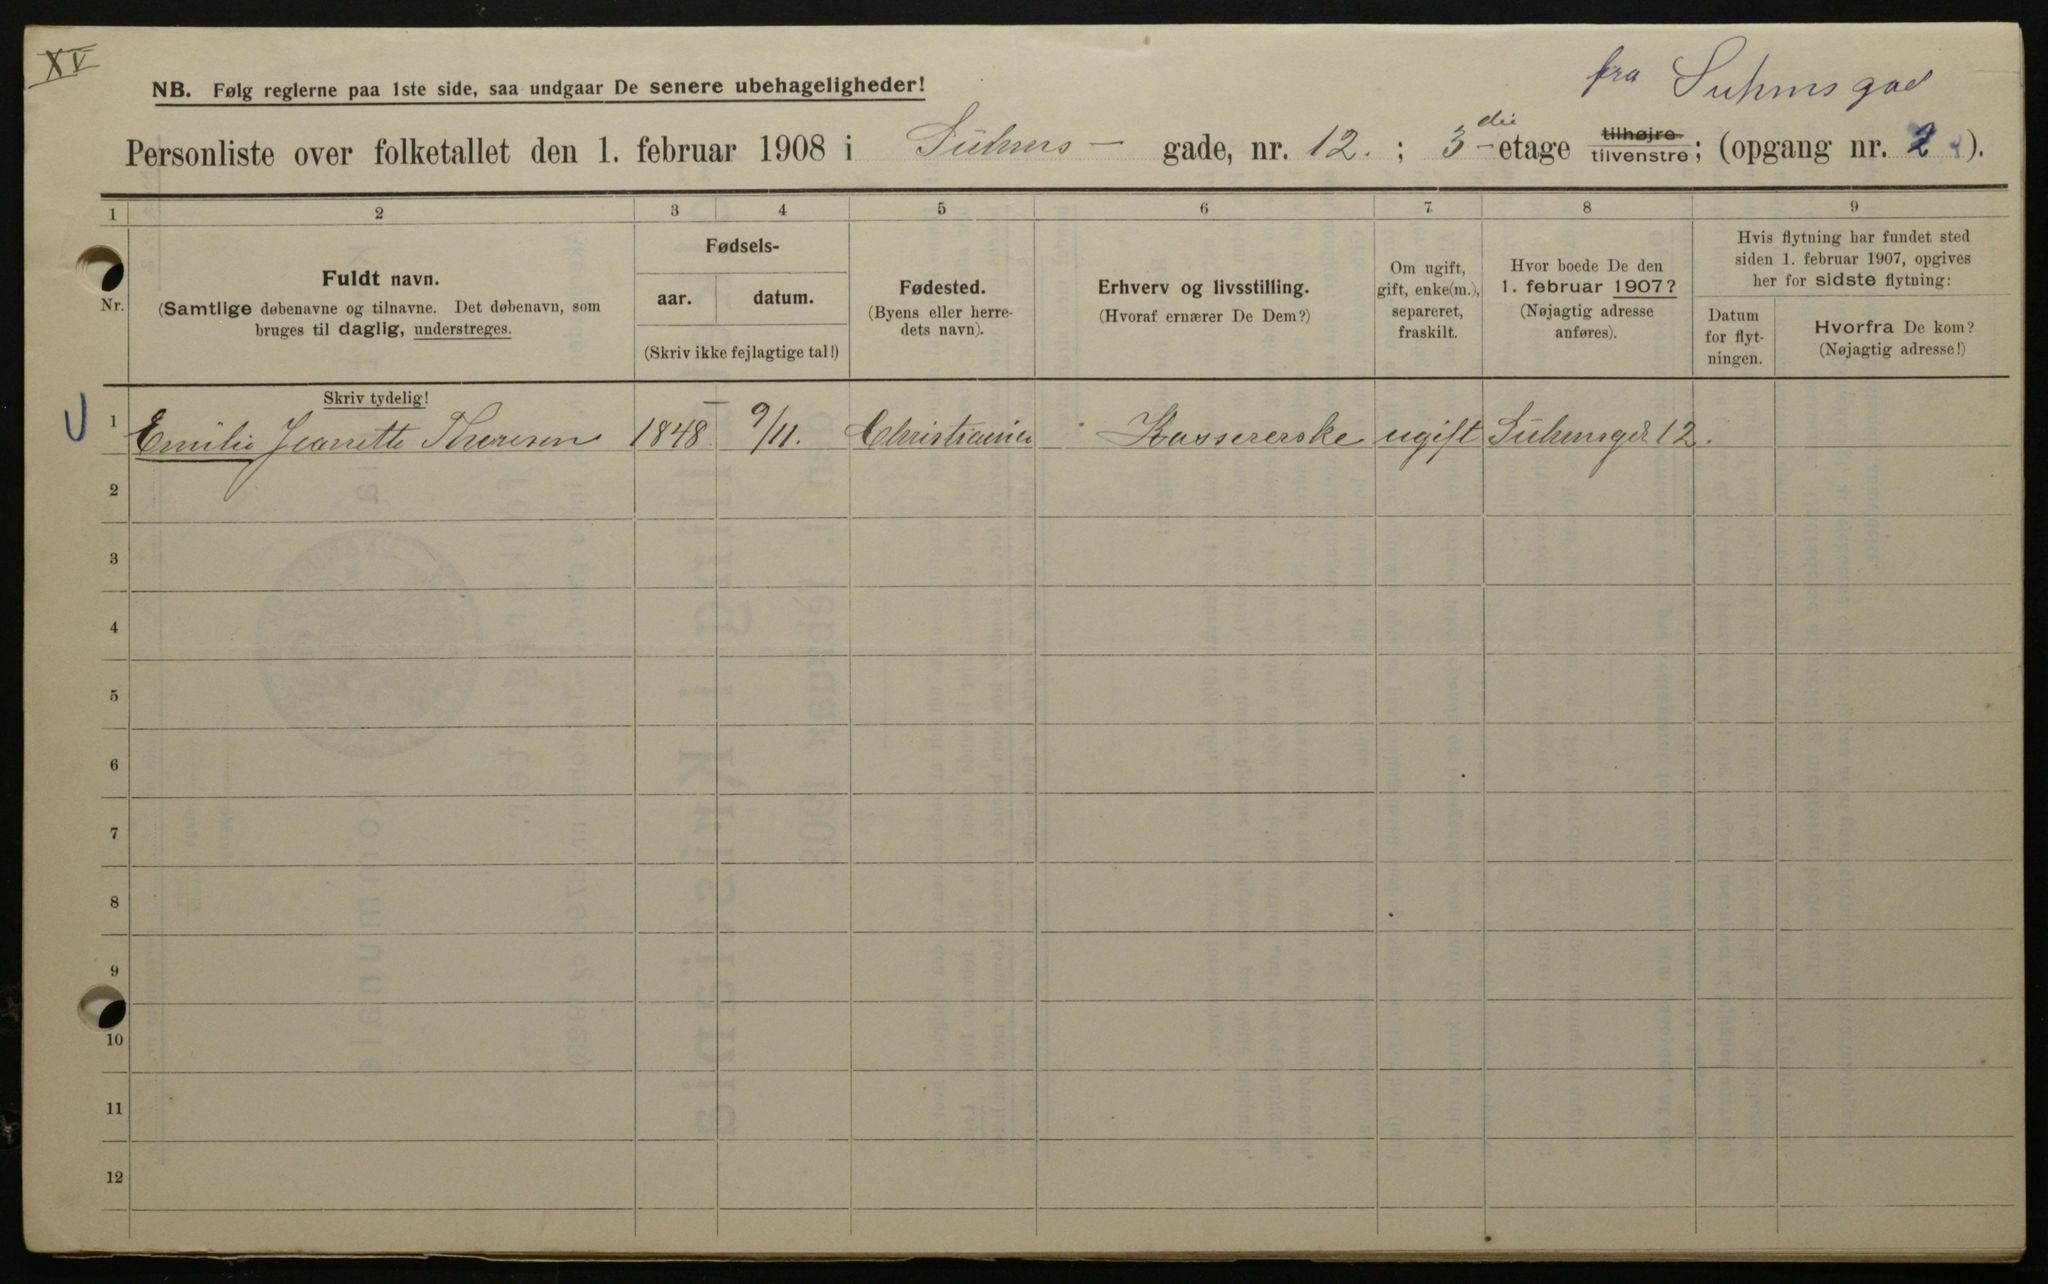 XV
NB. Følg reglerne paa 1ste side, saa undgaar De senere ubehageligheder!
fra Suhmsgad
Personliste over folketallet den 1. februar 1908 i Suhms - gade, nr. 12. ; 3 die - etage tilhøjre tilvenstre ; (opgang nr. 2 ).
1 2 3 4 5 6 7 8 9
Nr.
Fuldt navn.
(Samtlige døbenavne og tilnavne. Det døbenavn, som
bruges til daglig, understreges.
Fødsels-
aar. datum.
(Skriv ikke fejlagtige tal!)
Fødested.
(Byens eller herre-
dets navn).
Erhverv og livsstilling.
(Hvoraf ernærer De Dem?)
Om ugift,
gift, enke(m.),
separeret,
fraskilt.
Hvor boede De den
1. februar 1907?
(Nøjagtig adresse
anføres).
Hvis flytning har fundet sted
siden 1. februar 1907, opgives
her for sidste flytning:
Datum
for flyt-
ningen.
Hvorfra De kom?
(Nøjagtig adresse!)
Skriv tydelig!
1 Emilie Jeanette Thoresen 1848 9/11. Christiania Kassererske ugift Suhmsgd. 12.
2
3
4
5
6
7
8
9
10
11
12